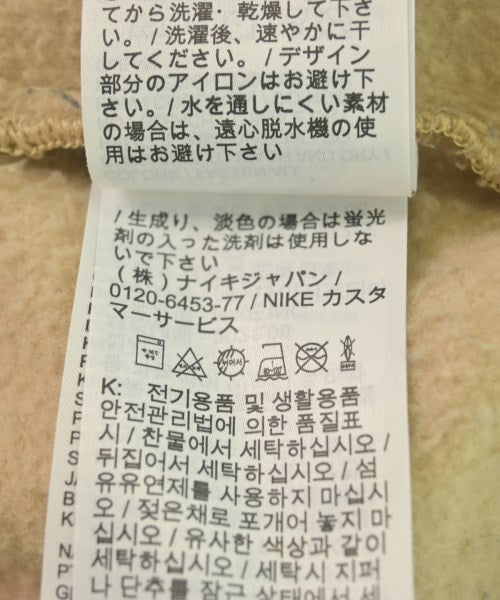 てから洗濯・乾燥して下さ
い。/ 洗濯後、速やかに干
してください。/ デザイン
部分のアイロンはお避け下
さい。/ 水を通しにくい素材
の場合は、遠心脱水機の使
用はお避け下さい
/ 生成り、淡色の場合は蛍光
剤の入った洗剤は使用しな
いで下さい
(株) ナイキジャパン /
0120-6453-77 / NIKE カスタ
マーサービス
K: 전기용품 및 생활용품
안전관리법에 의한 품질표
시 / 찬물에서 세탁하십시오 /
뒤집어서 세탁하십시오 / 섬
유유연제를 사용하지 마십시
오 / 젖은채로 포개어 놓지 마
십시오 / 유사한 색상과 같이
세탁하십시오 / 세탁시 지퍼
나 단추를 잠근 상태에서 세